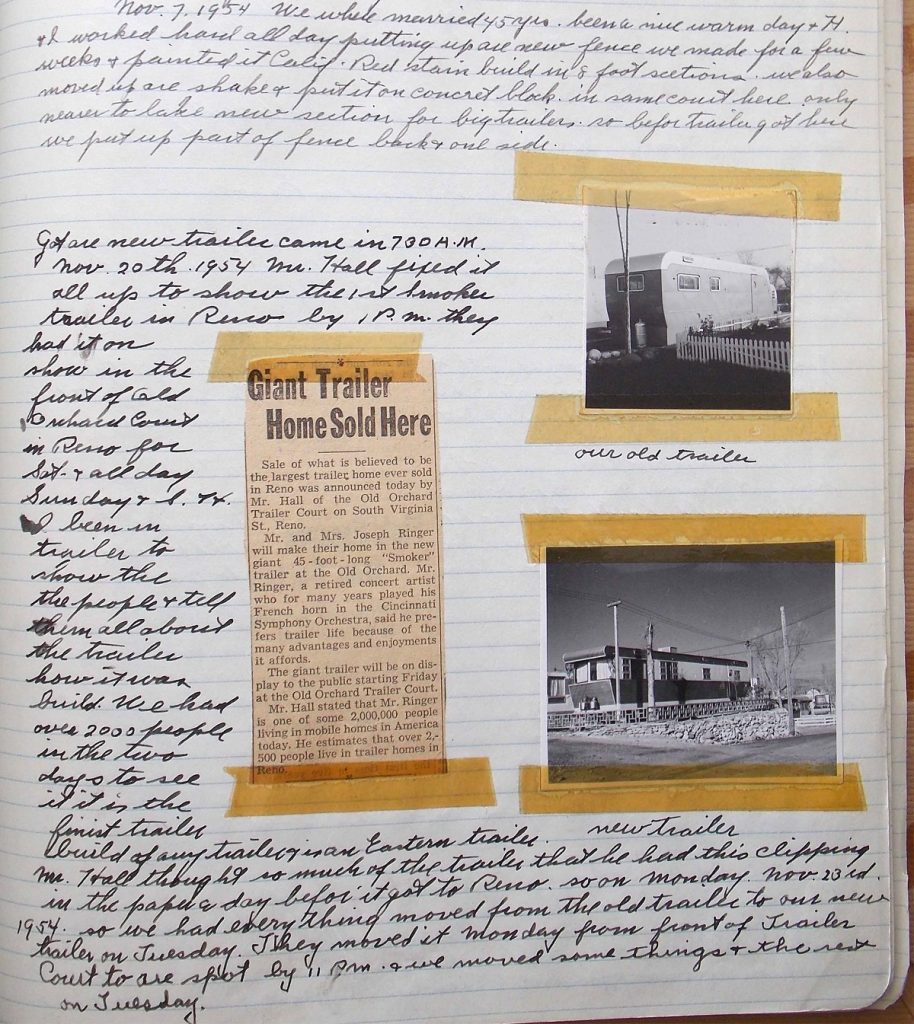 Nov. 7, 1954 We where married 45 yrs. been a nice warm day & H.
& I worked hard all day putting up are new fence we made for a few
weeks & painted it Calif. Red stain build in 8 foot sections. we also
moved up are shake & put it on concret block. in same court here. only
nearer to lake new section for big trailers. so befor trailer got here
we put up part of fence back & one side.
Got are new trailer came in 730 A.M.
Nov. 20th. 1954 Mr. Hall fixed it
all up to show the 1st Smoker
trailer in Reno by 1 P.m. they
had it on
show in the
front of Old
Orchard Court
in Reno for
Sat. & all day
Sunday & J. &
I been in
trailer to
show the
the people & tell
them all about
the trailer
how it was
build. We had
over 2000 people
in the two
days to see
it it is the
finist trailer
build of any trailer & is an Eastern trailer.
Mr. Hall thought so much of the trailer that he had this clipping
in the paper a day befor it got to Reno. so on Monday. Nov. 23rd.
1954. so we had every thing moved from the old trailer to our new
trailer on Tuesday. They moved it Monday from front of Trailer
Court to are spot by 11 P.m. & we moved some things & the rest
on Tuesday.
Giant Trailer
Home Sold Here
Sale of what is believed to be
the largest trailer home ever sold
in Reno was announced today by
Mr. Hall of the Old Orchard
Trailer Court on South Virginia
St., Reno.
Mr. and Mrs. Joseph Ringer
will make their home in the new
giant 45-foot-long "Smoker"
trailer at the Old Orchard. Mr.
Ringer, a retired concert artist
who for many years played his
French horn in the Cincinnati
Symphony Orchestra, said he pre-
fers trailer life because of the
many advantages and enjoyments
it affords.
The giant trailer will be on dis-
play to the public starting Friday
at the Old Orchard Trailer Court.
Mr. Hall stated that Mr. Ringer
is one of some 2,000,000 people
living in mobile homes in America
today. He estimates that over 2,-
500 people live in trailer homes in
Reno.
our old trailer
new trailer